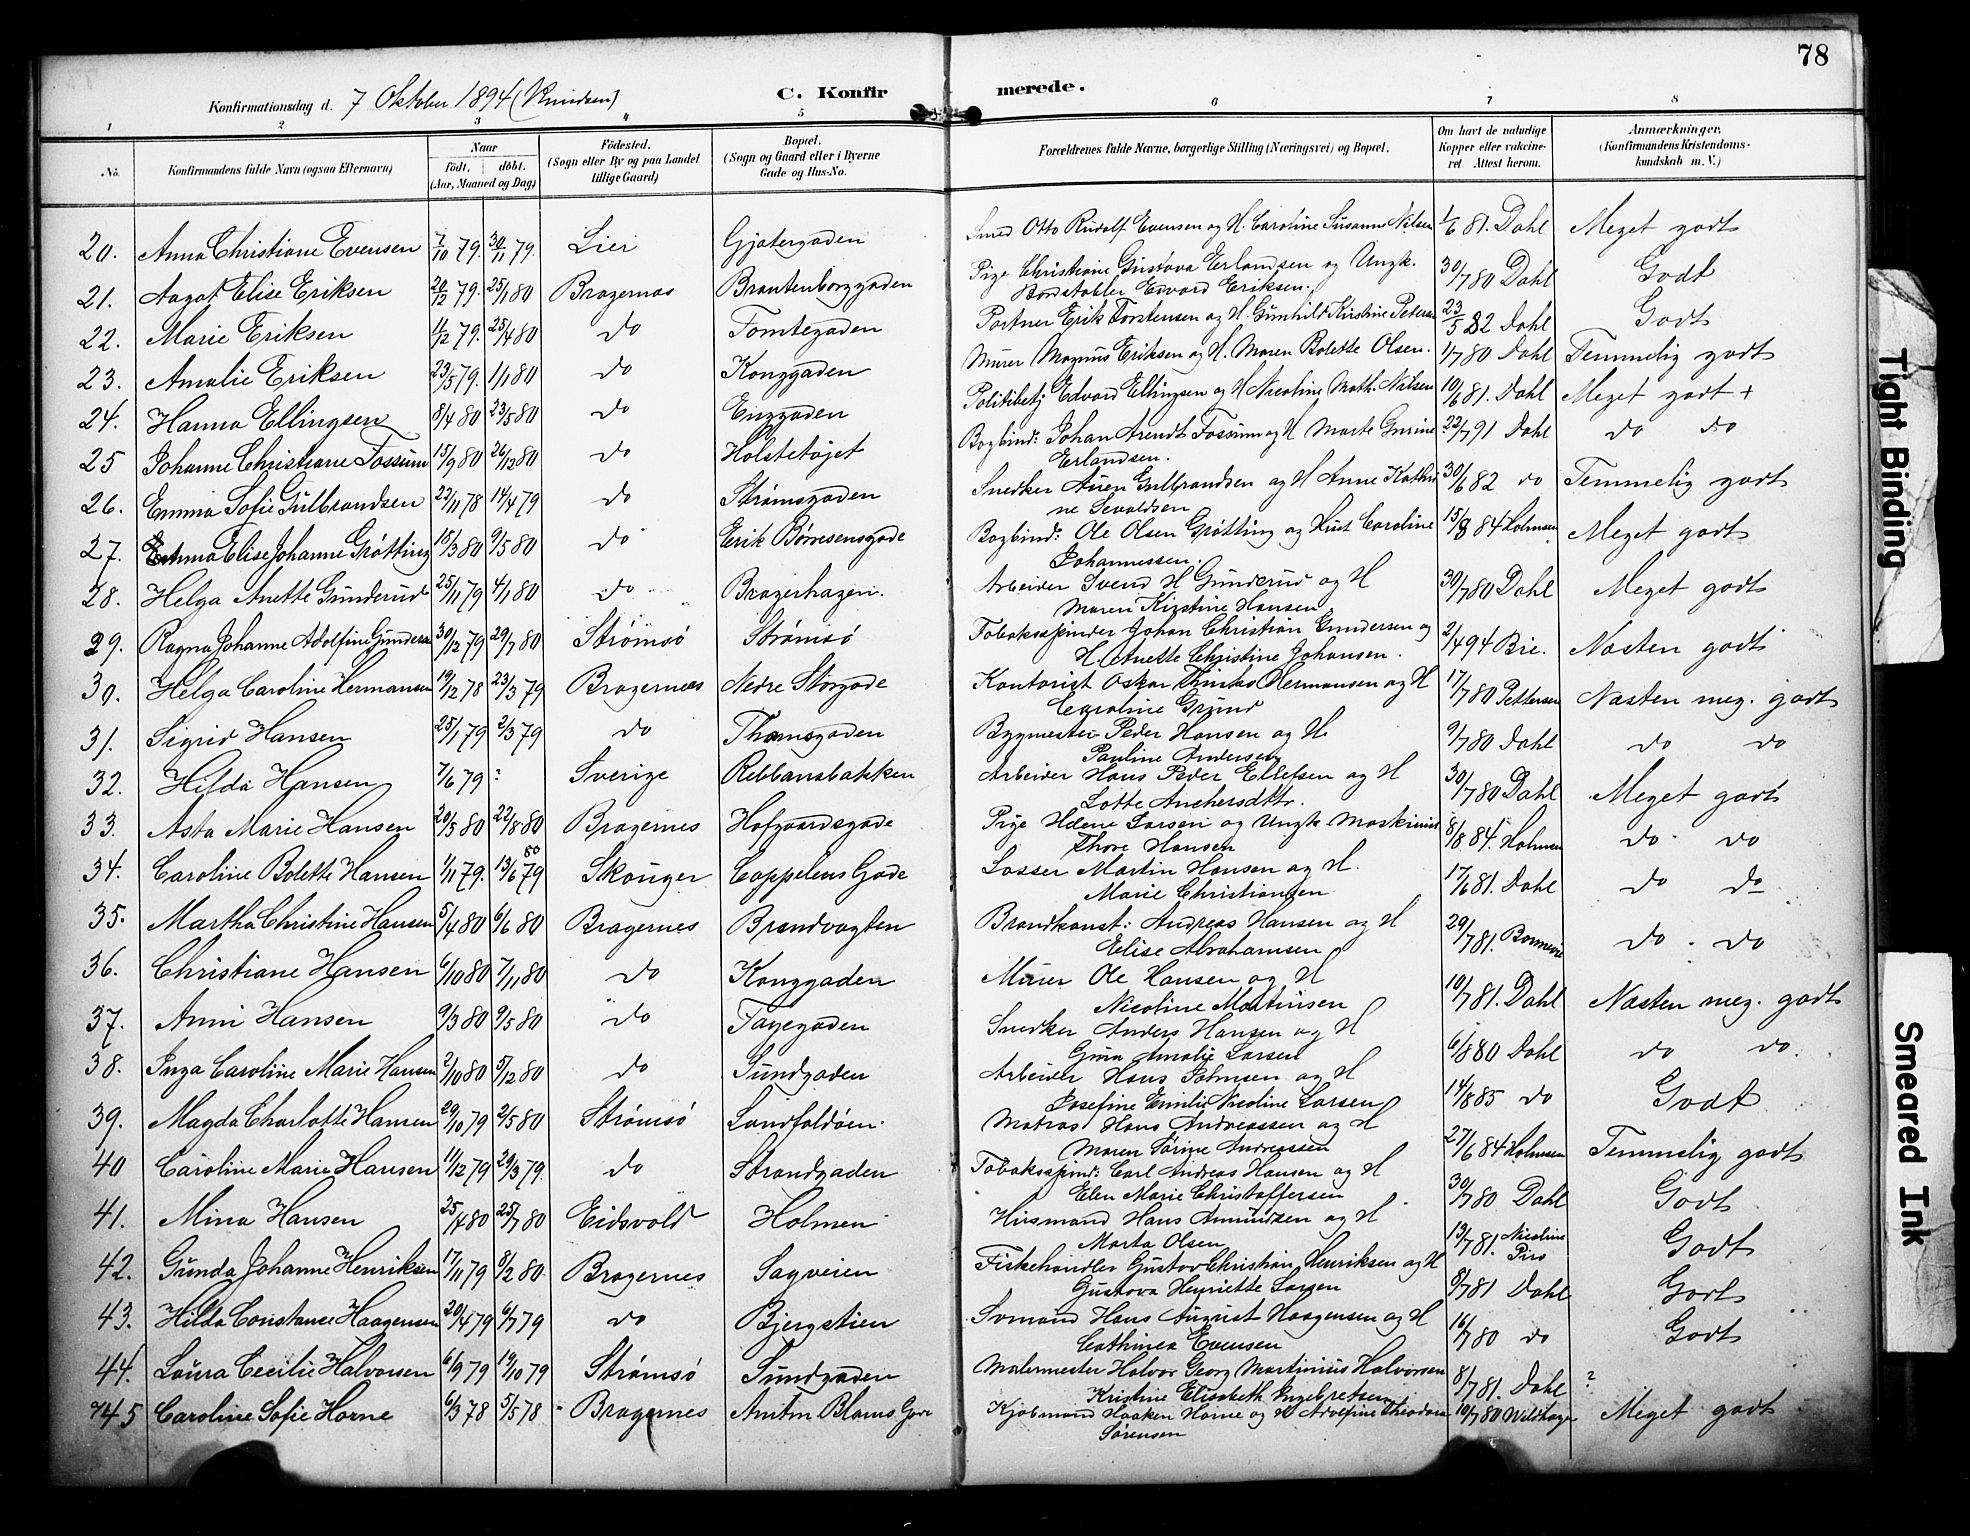 78
Konfirmationsdag d. 7 Oktober 1894 (Knudsen) C. Konfirmerede.
1 2 3 4 5 6 7 8
No. Konfirmandens fulde Navn (ogsaa Efternavn) Naar födt. döbt. (Aar, Maaned og Dag) Födested. (Sogn eller By og paa Landet tillige Gaard) Bopæl. (Sogn og Gaard eller i Byerne Gade og Hus-No. Forældrenes fulde Navne, borgerlige Stilling (Næringsvei) og Bopæl. Om havt de naturlige Kopper eller vaccineret Attest herom. Anmærkninger, (Konfirmandens Kristendomskundskab m. V.)
20. Anna Christiane Evensen 7/10 79. 30/11 79. Lier Gjetergaden Smed Otto Rudolf Evensen og H. Caroline Susanne Nilsen 1/6 81. Dahl Meget godt
21. Aagot Elise Eriksen 20/12 79. 25/1 80 Bragernes Brantenborggaden Pige Christiane Gustava Erlandsen og Ungk. Edvard Eriksen. 30/7 80 Dahl Godt
22. Marie Eriksen 11/12 79. 25/4 80 do Tomtegaden Portner Erik Torstensen og H. Gunhild Kirstine Petersen 23/5 82 Dahl Godt
23. Amalie Eriksen 23/5 79. 1/1 80 do Konggaden Murer Magnus Eriksen og H. Maren Bolette Olsen. 1/7 80 Dahl Temmelig godt
24. Hanna Ellingsen 8/4 80 23/5 80 do Enggaden Politibetj Edvard Ellingsen og H Nicoline Math. Nilsen 10/6 81. Dahl Meget godt +
25 Johanne Christiane Fossum 15/9 80 26/12 80 do Holstetøjet Bogbind: Johan Arendt Fossum og H Marte Gurine Erlandsen. 22/7 91 Dahl do do
26. Emma Sofie Gulbrandsen 22/11 78 14/4 79 do Strømsgaden Snedker Auen Gulbrandsen og H Anne Kathrine Sevaldsen 30/6 82 do Temmelig godt
27. Emma Elise Johanne Grøtting 15/3 80 9/5 80 do Erik Børresensgade Bogbind: Ole Olsen Grøtting og Hust Caroline Johannessen. 15/8 84 Holmsen Meget godt
28. Helga Anette Gunderud 25/11 79 4/1 80 do Bragerhagen. Arbeider Svend H Gunderud og H Maren Kirstine Hansen. 30/7 80 Dahl Meget godt
29. Ragna Johanne Adolfine Gundersen 30/12 79 29/7 80 Strømsö Strömsö Tobaksspinder Johan Christian Gundersen og H. Anette Christine Johansen. 2/4 94 Bie. Næsten godt
30. Helga Caroline Hermansen 19/12 78 23/3 79 Bragernes Nedre Storgade Kontorist Oskar Hermansen og H Caroline Grund 17/7 80 Pettersen Næsten meg. godt
31. Sigrid Hansen 25/1 79 2/3 79 do Thamsgaden Bygmester Peder Hansen og H. Pauline Andersen 9/7 80 Dahl do do
32. Hilda Hansen 7/6 79 ? Sverige Rebbansbakken Arbeider Hans Peder Ellefsen og H Lotte Anchersdttr. 30/7 80 Dahl Meget godt
33. Asta Marie Hansen 20/5 80 22/8 80 Bragernes Hofgaardsgade Pige Helene Larsen og Ungk Maskinist Thore Hansen 8/8 84. Holmsen do do
34. Caroline Bolette Hansen 1/11 79. 13/6 79 80 Skouger Cappelens Gade Losser Martin Hansen og H. Marie Christiansen 17/6 81. Dahl do do
35. Martha Christine Hansen 5/4 80 6/6 80 Bragernes Brandvagten Brandkonst: Andreas Hansen og H Elise Abrahamsen 29/7 81. do do
36. Christiane Hansen 6/10 80 7/11 80 do Konggaden Murer Ole Hansen og H Nicoline Martinsen 10/7 81. Dahl Næsten meg. godt
37. Anni Hansen 9/3 80 9/5 80 do Tagegaden Snedker Anders Hansen og H Gina Amalie Larsen 6/8 80 Dahl do do.
38. Inga Caroline Marie Hansen 2/10 80 5/12 80 do Sundgaden Arbeider Hans Johnsen og H Josefine Emilie Nicoline Larsen 14/8 85 do Godt
39. Magda Charlotte Hansen 29/10 79 2/5 80 Strömsö Landfaldöen. Matros Hans Andreassen og H Maren Sørine Andreassen 27/6 84 Holmsen Temmelig godt
40 Caroline Marie Hansen 11/12 79 20/3 79. do Strandgaden Tobaksspind: Carl Andreas Hansen og H Elen Marie Christoffersen 30/7 80 Dahl Godt
41. Mina Hansen 25/4 80 25/7 80 Eidsvold Holmen Husmand Hans Amundsen og H Marta Olsen 13/7 81. Nicoline Piro Godt
42. Gunda Johanne Henriksen 17/11 79 8/2 80 Bragernes Sagveien Fiskehandler Gustav Christian Henriksen og H Gustava Henriette Larsen 8/7 81 Dahl Godt
43. Hilda Constance Haagensen 20/4 79 6/7 79 do Bjergstien Sømand Hans August Haagensen og H Cathinca Evensen 16/7 80 do Godt
44. Laura Cecilie Halvorsen 6/9 79 19/10 79 Strømsö Sundgaden Malermester Halvor Georg Martinius Halvorsen Kristine Elisabeth Ingebretsen 8/7 81. Dahl ?
45 Caroline Sofie Horne 6/3 78 5/5 78 Bragernes Anton Blams Gade Kjøbmand Haaken Horne og H Adolfine Theodora Sørensen 10/7 80 Wildhagen Meget godt
Tight Binding
Smeared Ink